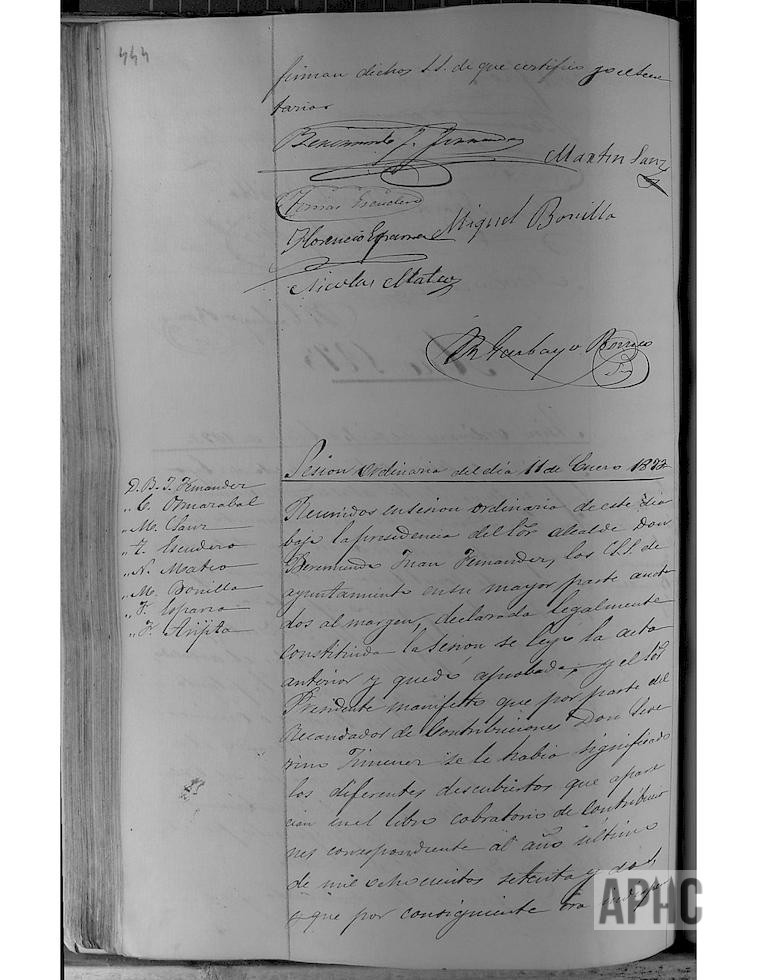 444
firman dichos S.S. de que certifico yo el Secre
tario
Beremundo J. Fernandez
Martin Sanz
Tomas Escudero
Florencio Esparza Miguel Bonilla
Nicolas Mateo
Garbayo
Sesion Ordinaria del dia 11 de Enero 1873
D. B. J. Fernandez
" C. Omarabal
" M. Sanz
" t. Escudero
" N. Mateo
" M. Bonilla
" F. Esparza
" F. Arijita
Reunidos en sesion ordinaria de este dia
bajo la presidencia del Sor alcalde Don
Beremundo Juan Fernandez, los S.S. de
ayuntamiento en su mayor parte anota
dos al margen, declarada legalmente
constituida la Sesion se leyo la acta
anterior y quedó aprobada, y el Sor
Presidente manifesto que por parte del
Recaudador de Contribuciones Don Seve
rino Jimenez se le habia significado
los diferentes descubiertos que apare
cian en el libro cobratorio de Contribucio
nes correspondiente al año ultimo
de mil ochocientos setenta y dos
y que por consiguiente era
APHC